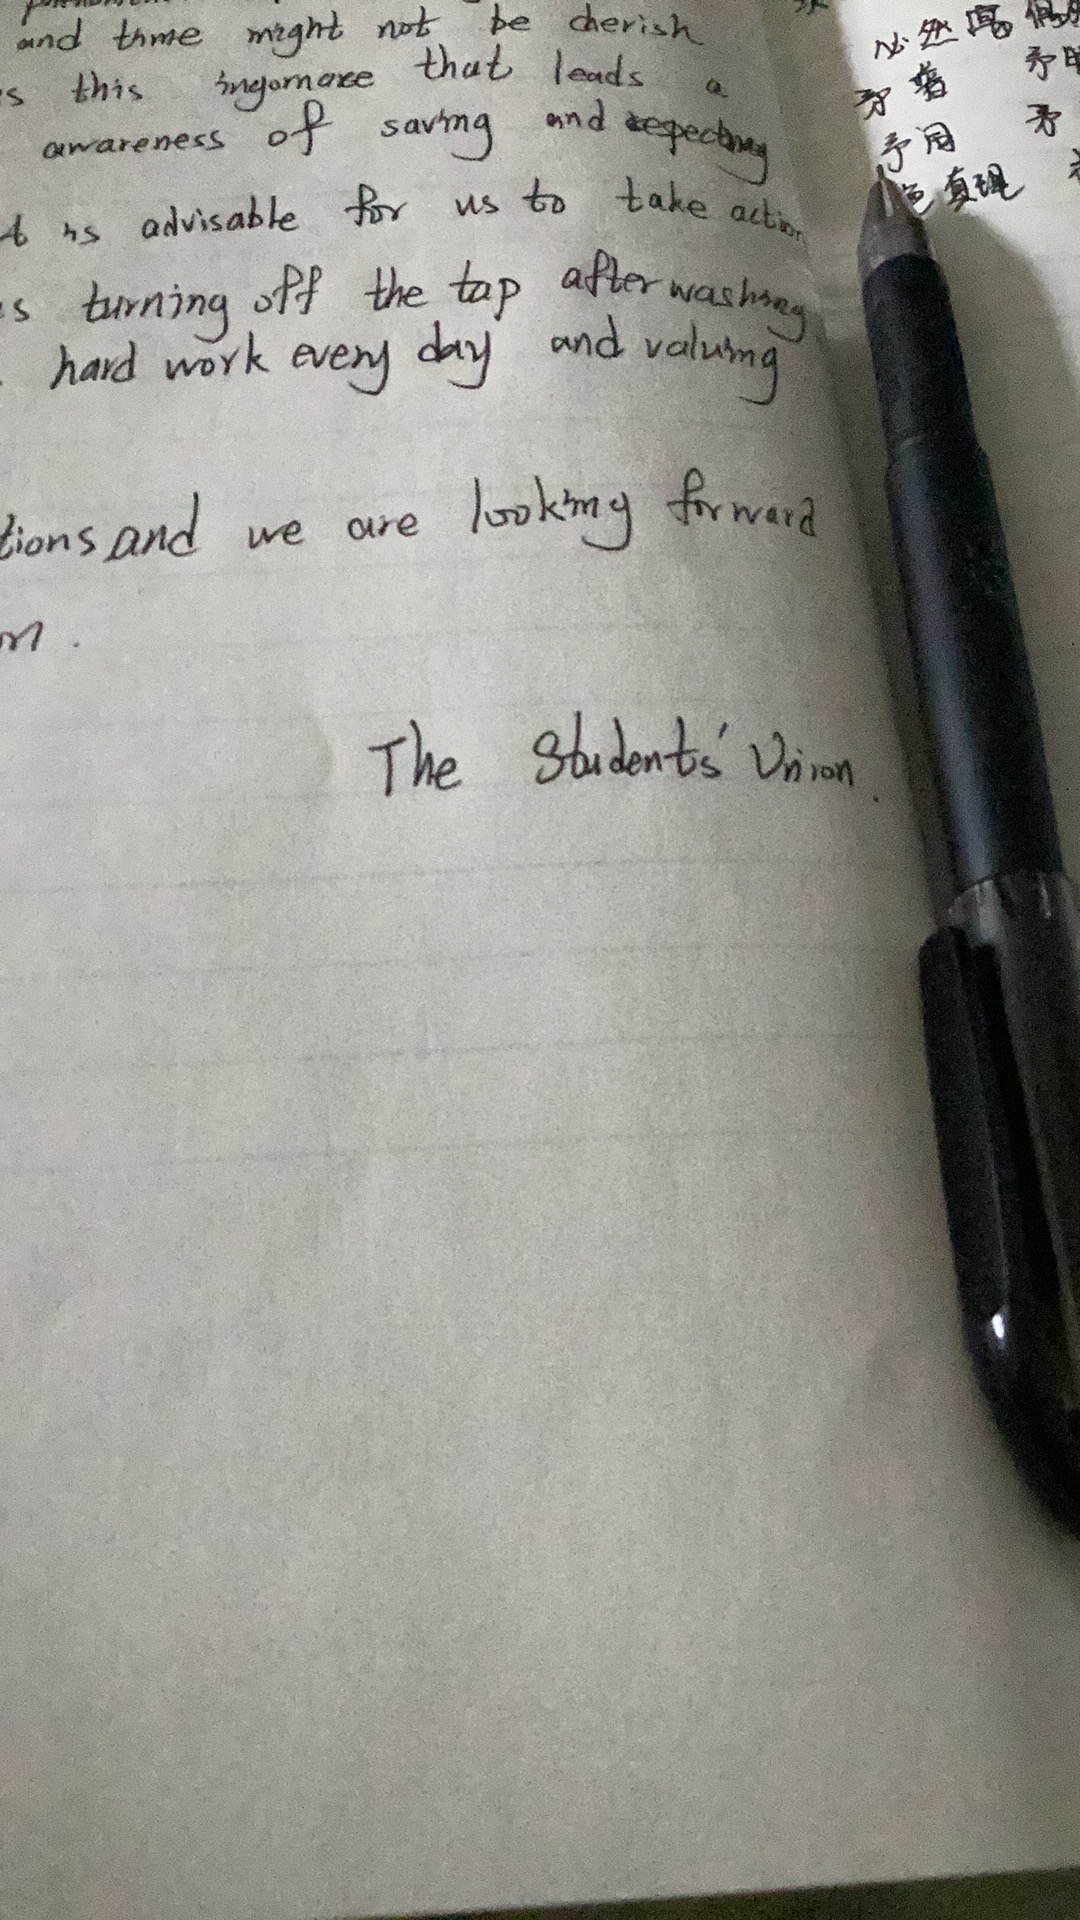 and time might not be cherish
s this ingornace that leads a
awareness of saving and respecting
t is advisable for us to take action
s turning off the tap after washing
hard work every day and valuing
tions and we are looking forward
on.
The Students' Union.
必然寓偶
矛盾
矛